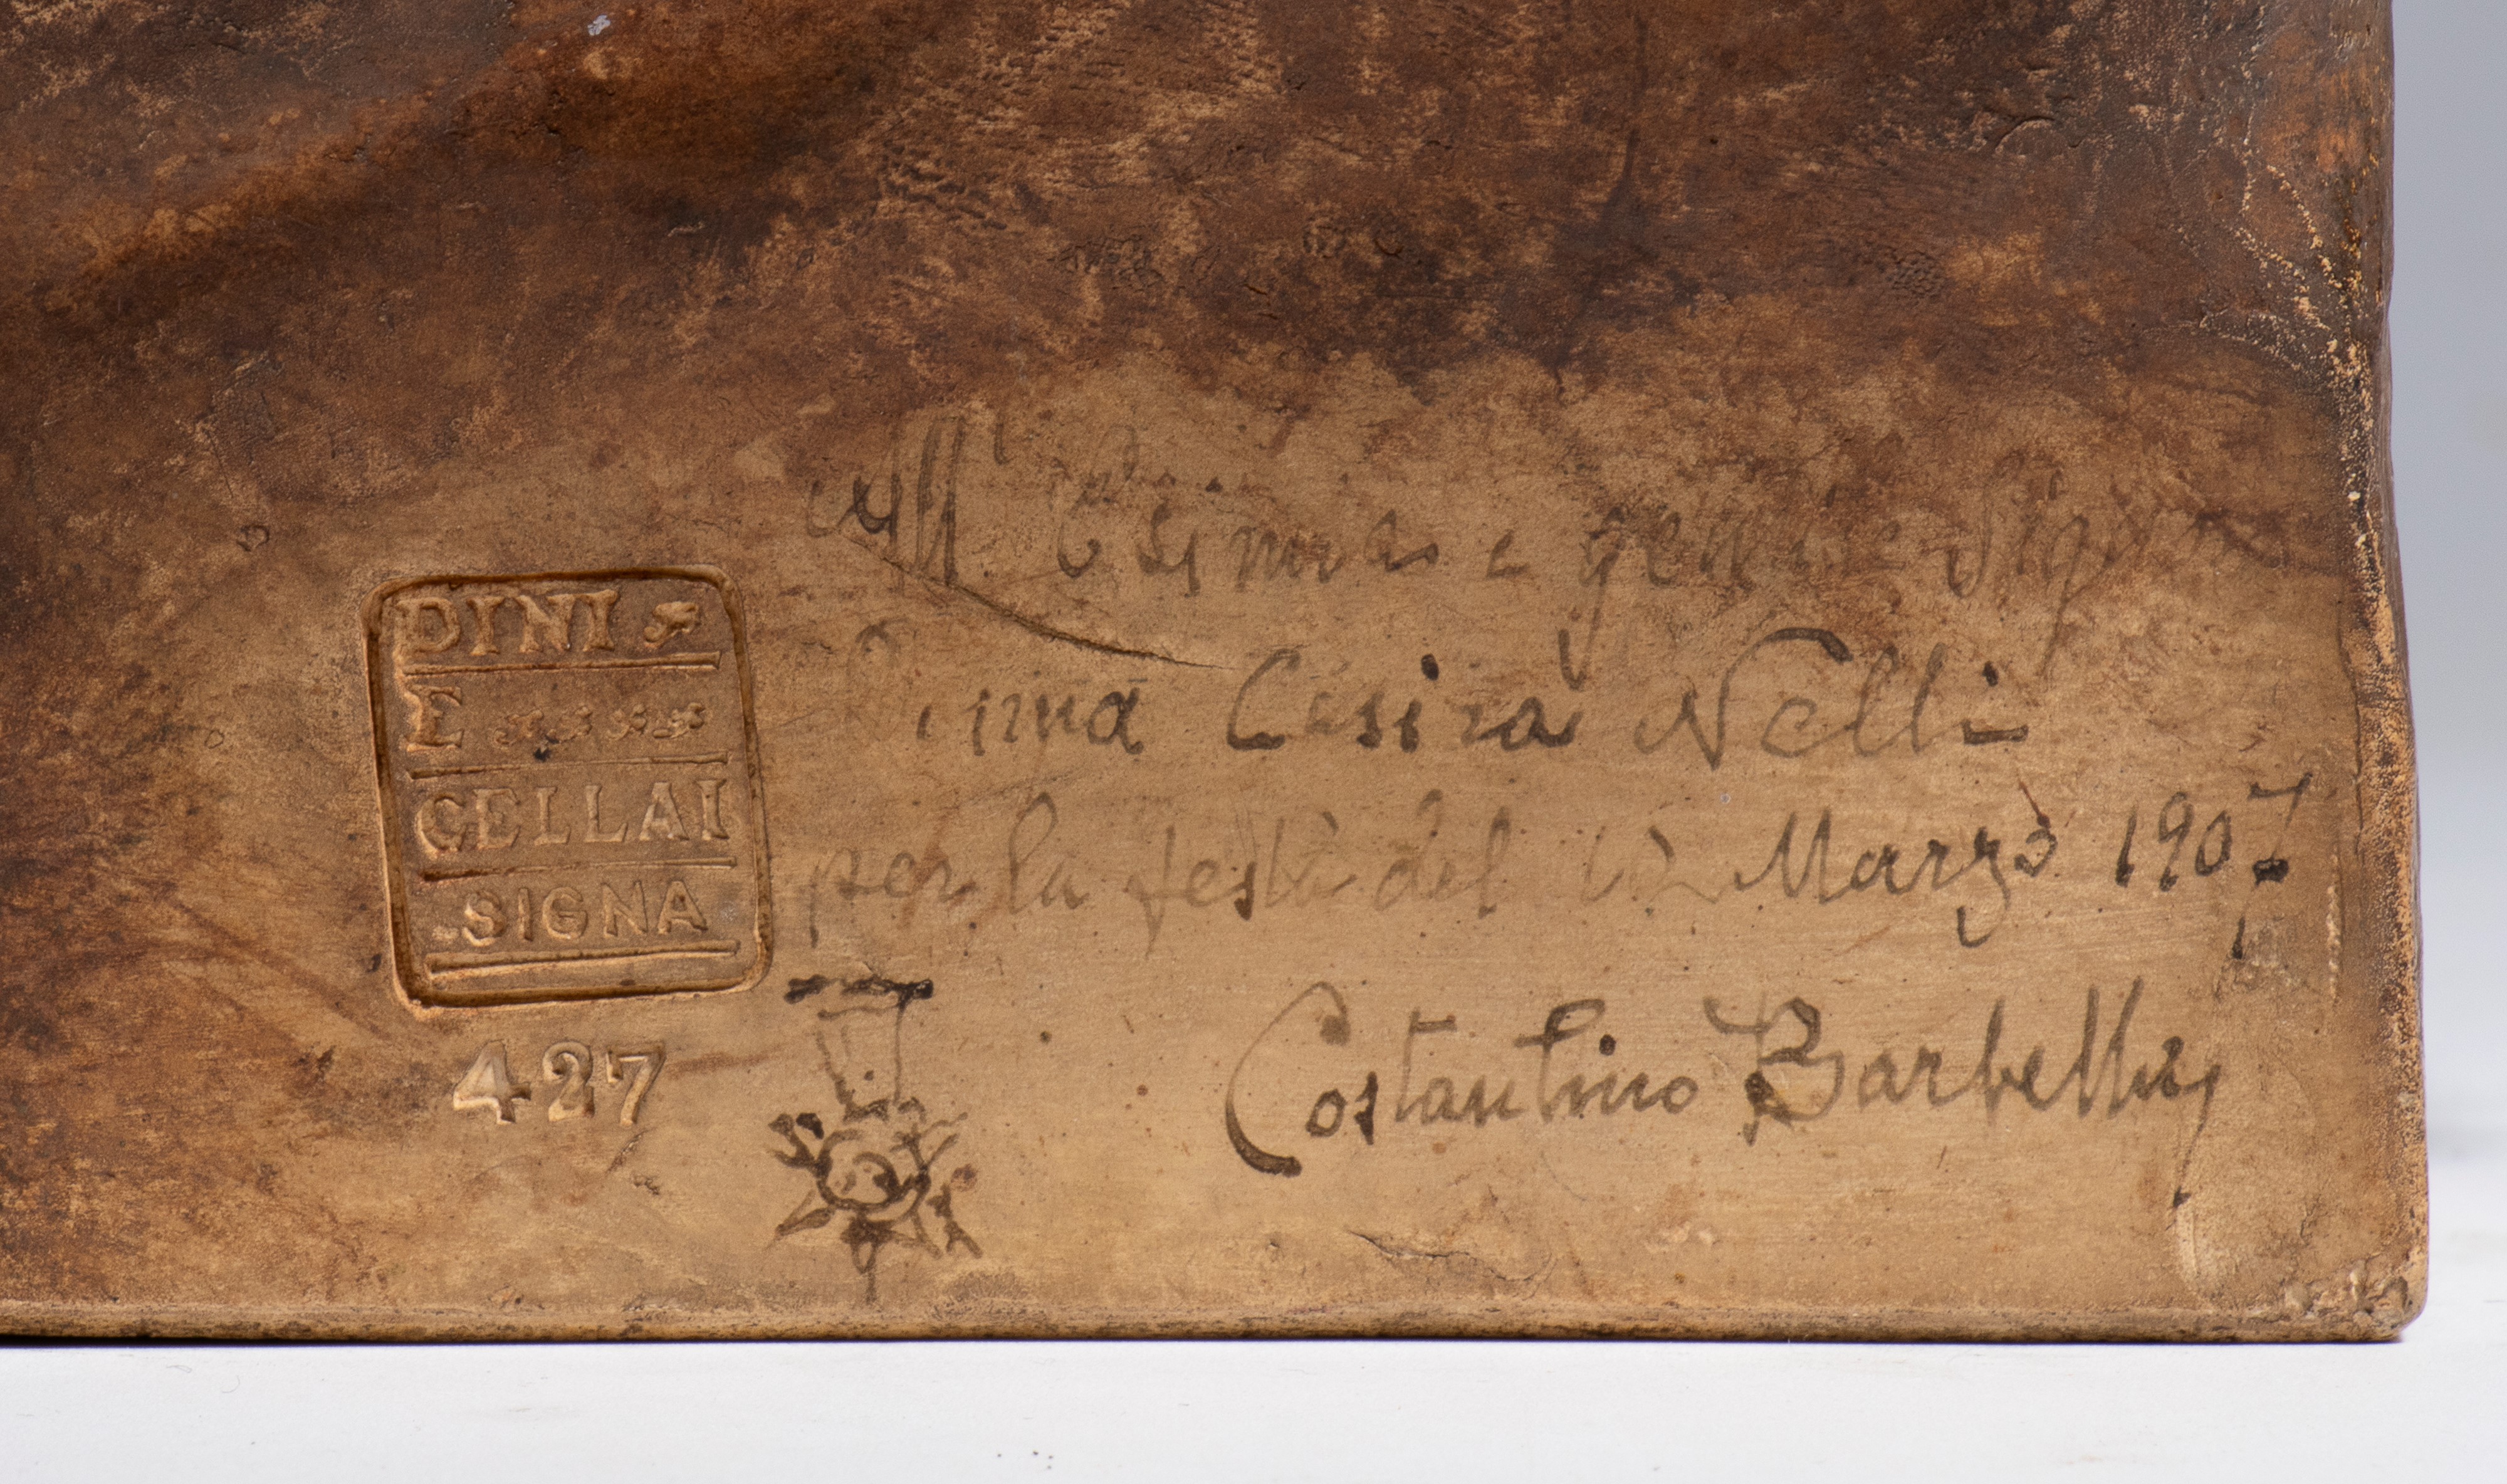 DINI
E
CELLAI
SIGNA
427
All' Esimia e gentile
Donna Cesira Nelli
per la festa del 12 Marzo 1907
Costantino Barbella